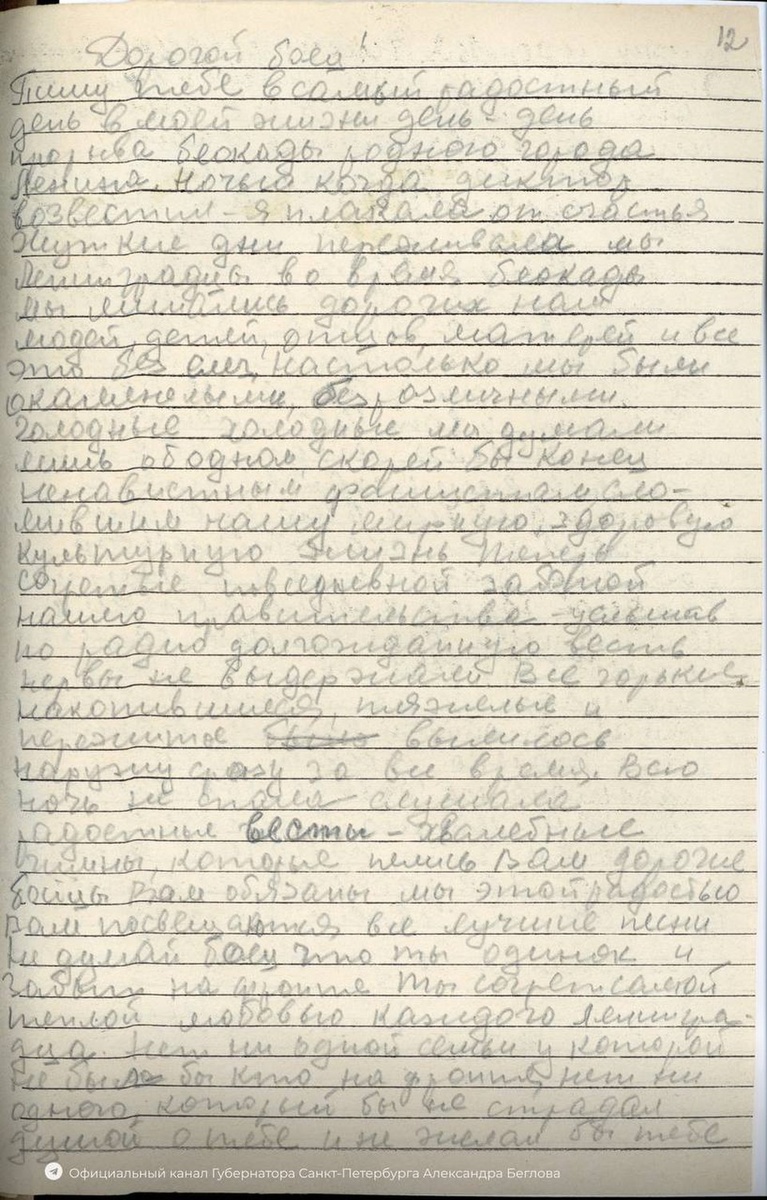 12
Дорогой боец!
Пишу тебе в самый радостный
день в моей жизни день - день
прорыва блокады родного города
Ленина. Ночью когда диктор
возвестил - я плакала от счастья
Жуткие дни переживали мы
Ленинградцы во время блокады
мы лишались дорогих нам
людей, детей, отцов, матерей и все
это без слез, настолько мы были
окаменелыми, безразличными.
Голодные холодные мы думали
лишь об одном, скорей бы конец
ненавистным фашистам сло-
мившим нашу мирную, здоровую
культурную жизнь теперь
согретые повседневной заботой
нашего правительства - услышав
по радио долгожданную весть
нервы не выдержали Все горькие,
накопившиеся, тяжелые и
пережитое было вылилось
наружу сразу за все время. Всю
ночь не спала слушала
радостные вести - хвалебные
гимны, которые пелись Вам дорогие
бойцы Вам обязаны мы этой радостью
Вам посвещаются все лучшие песни
Не думай боец что ты одинок и
забыт на фронте Ты согрет самой
теплой любовью каждого Ленингра-
дца. Нет ни одной семьи у которой
не было бы кто на фронте, нет ни
одного, который бы не страдал
душой о тебе и не желал бы тебе
Официальный канал Губернатора Санкт-Петербурга Александра Беглова